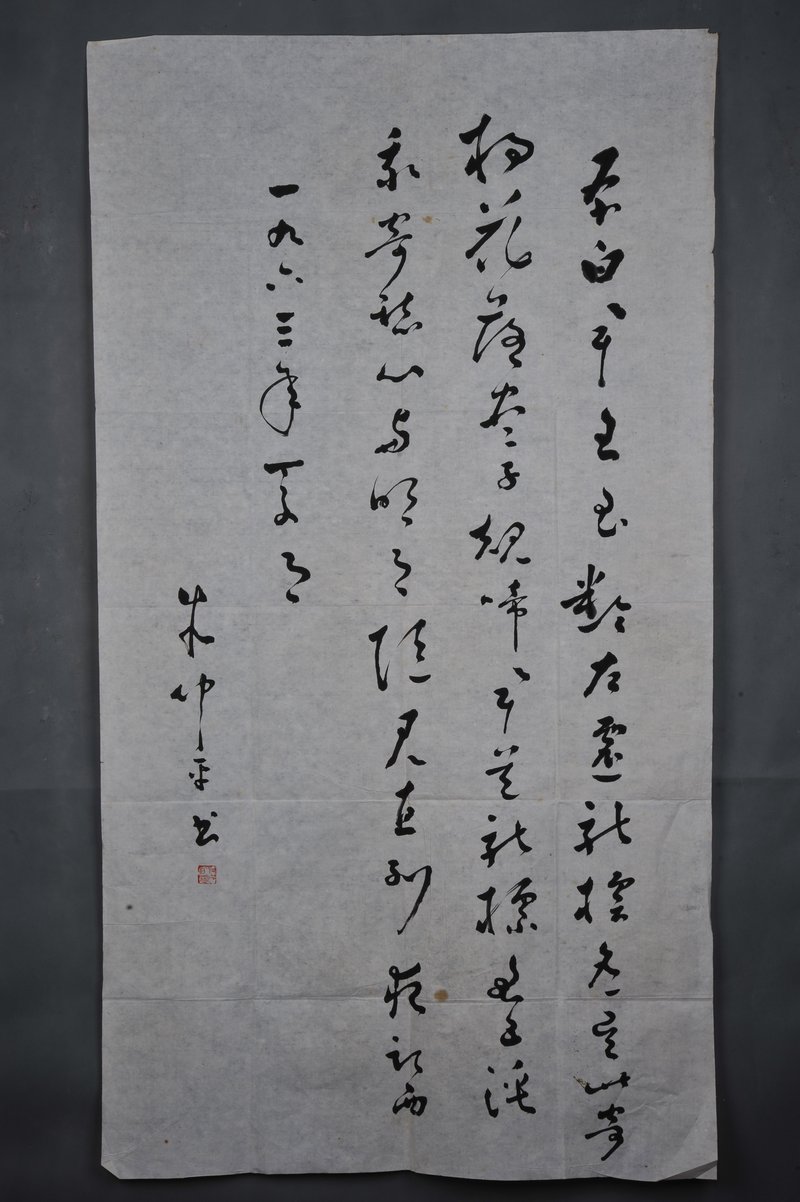 李白闻王昌龄左迁龙标遥有此寄
杨花落尽子规啼闻道龙标过五溪
我寄愁心与明月随君直到夜郎西
一九六三年夏月
朱仲平书